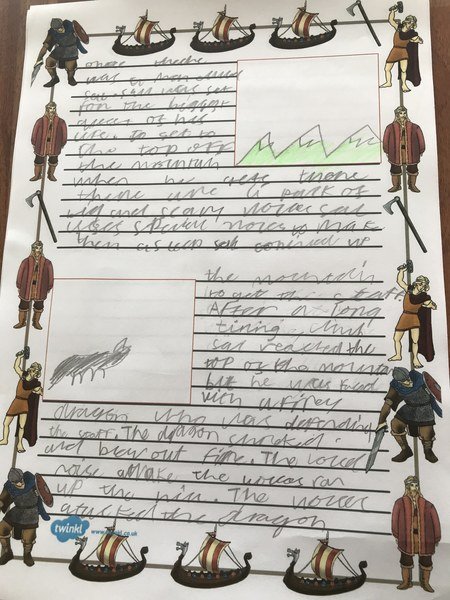 once there
was a man called
Sal. Sal was set
for the biggest
quest of his
life. to get to
the top off
the mountain
when he gets there
there were a pack of
wolves Sal
uses special to make
them asleep Sal contined up
the mountain
to get the staff.
After a long
tiring climb
Sal reached the
top of the mountain
but he was faced
with a firey
dragon who was defending
the staff. The dragon smoked
and blew out fire. The loud
noise awake the wolves ran
up the hill. The wolves
attacked the dragon
twinkl